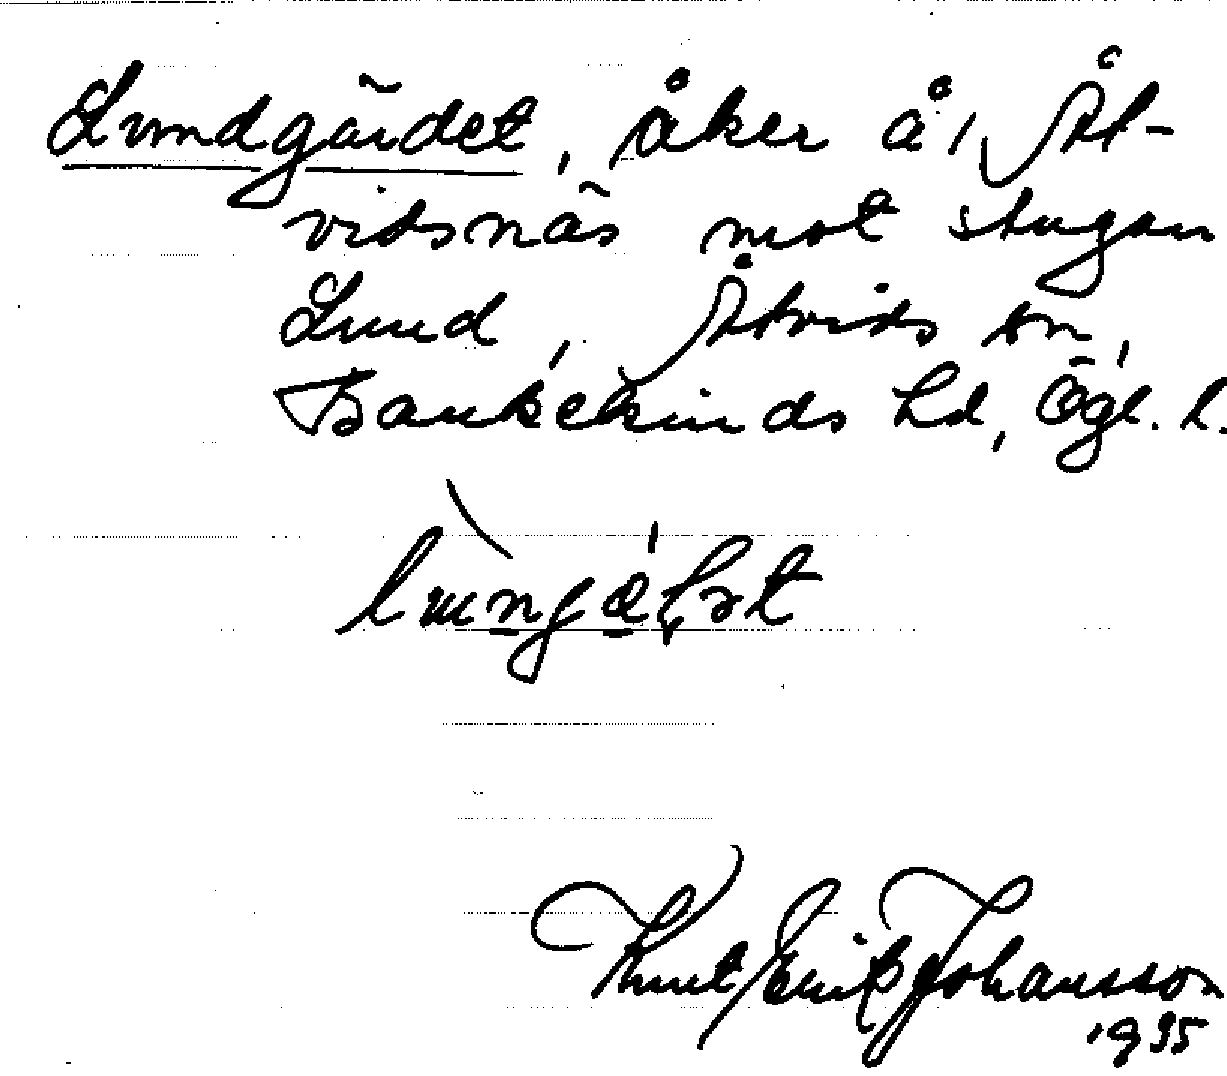 Lundgärdet, åker å Åt-
vidsnäs mot stugan
Lund, Åtvids sn,
Bankekinds hd, Ögl. l.
Knut Erik Johansson
1935